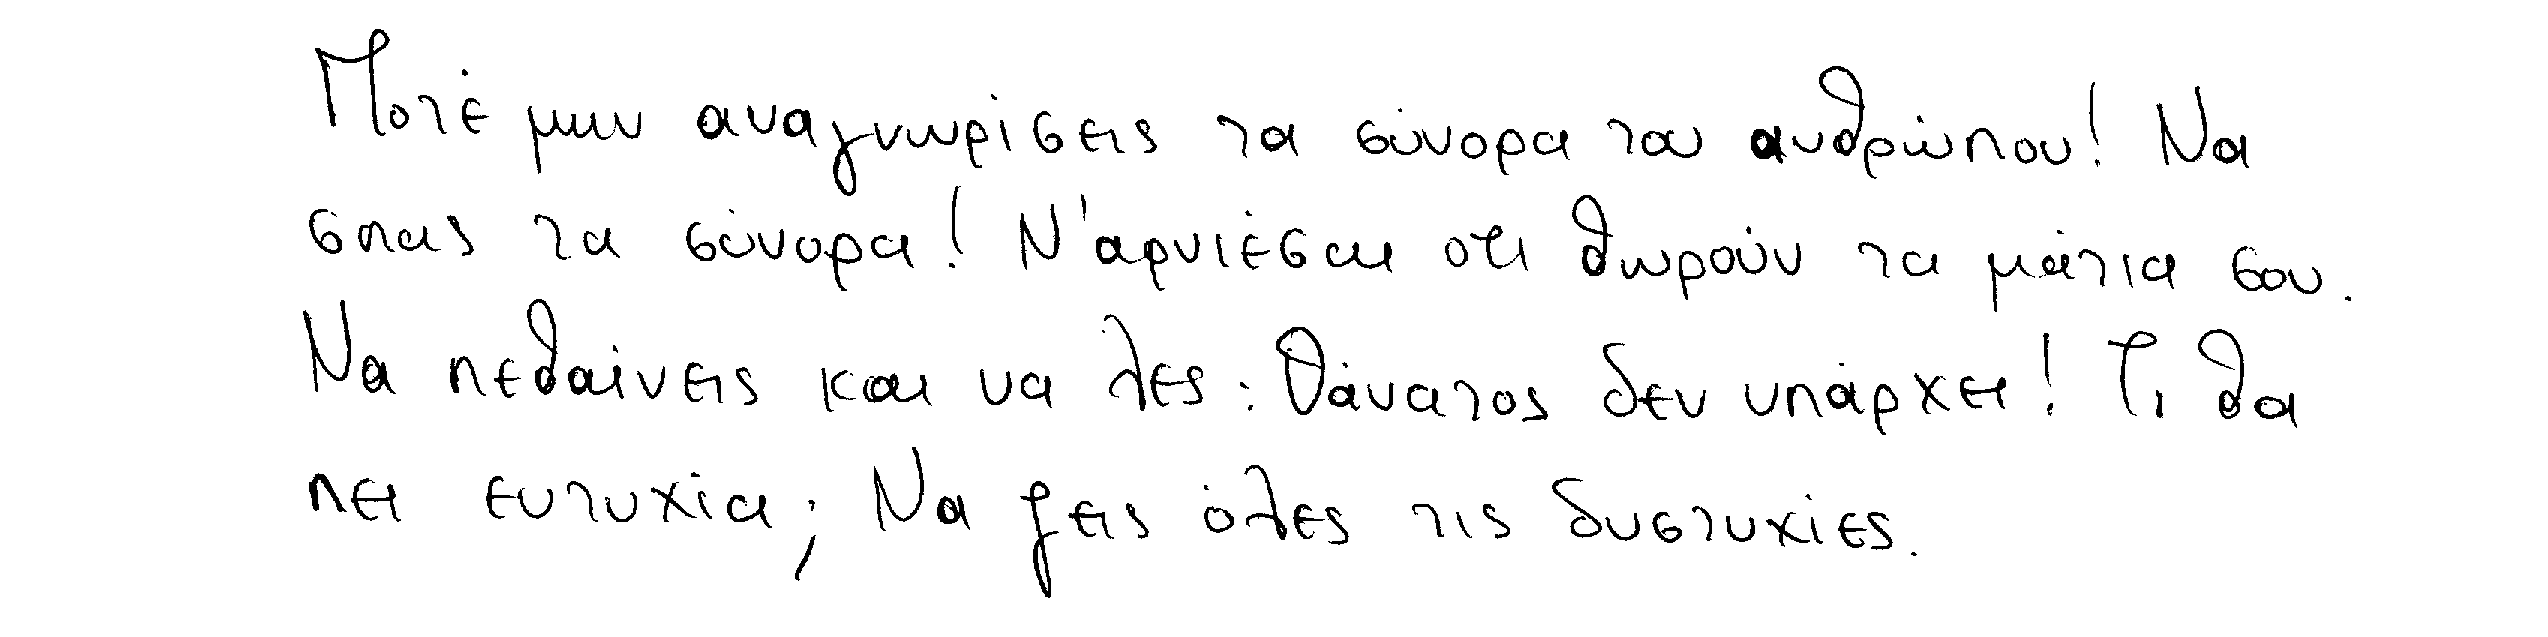 Ποτέ μην αναγνωρίσεις τα σύνορα του ανθρώπου! Να
σπας τα σύνορα! Ν'αρνιέσαι οτι θωρούν τα μάτια σου.
Να πεθαίνεις και να λες: Θάνατος δεν υπάρχει! Τι θα
πει ευτυχία; Να ζεις όλες τις δυστυχίες.